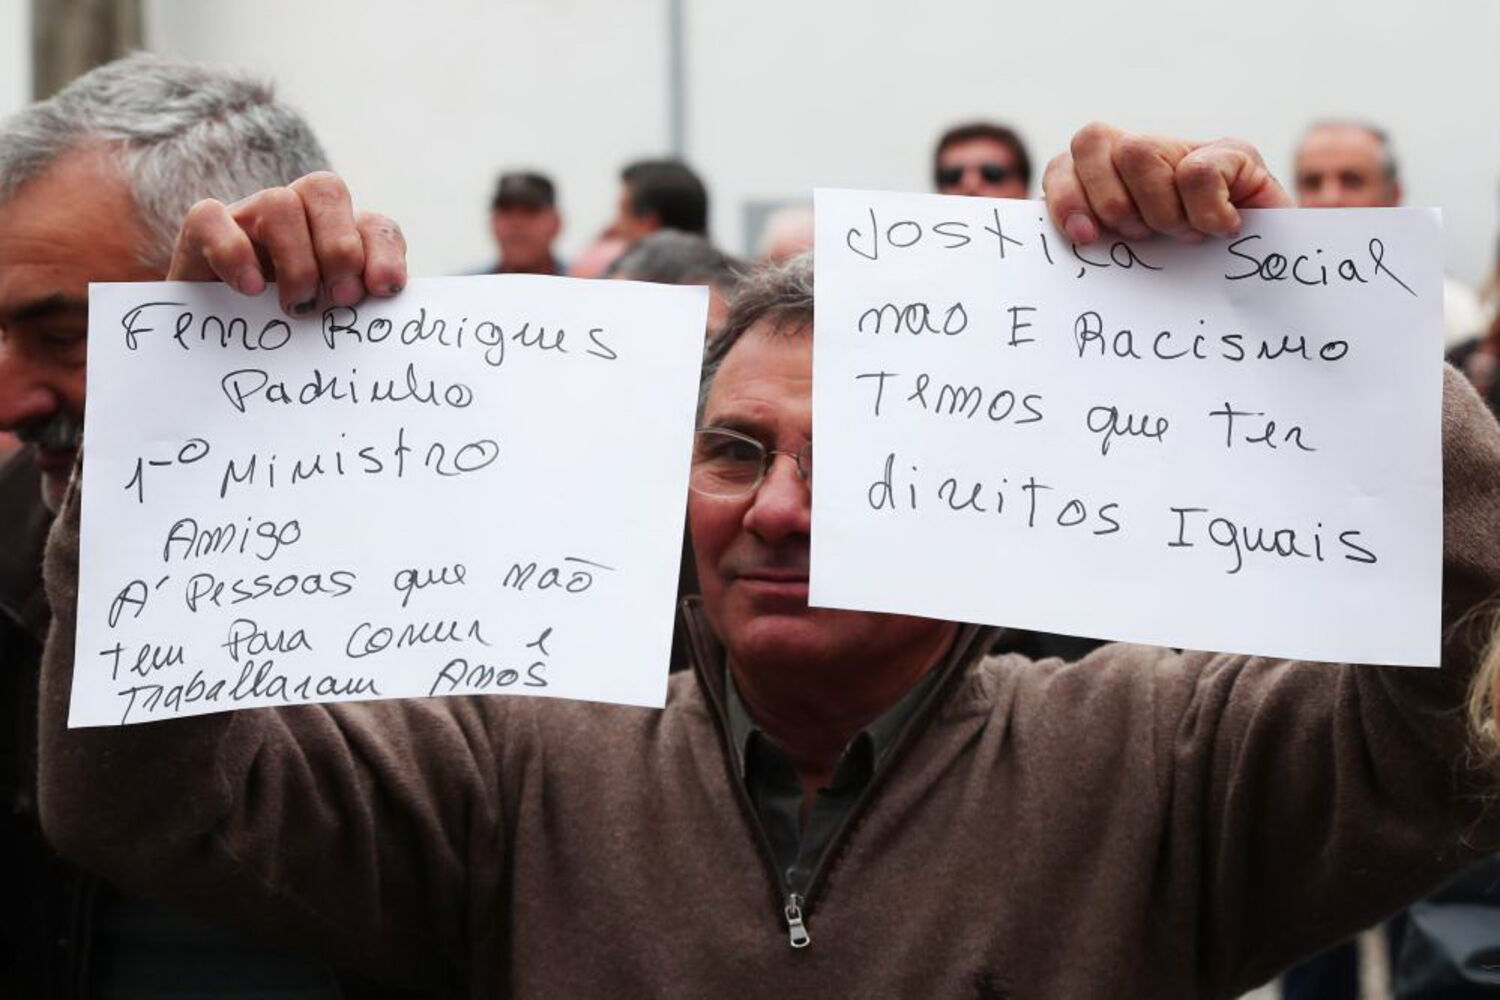 Ferro Rodrigues
Padrinho
1º Ministro
Amigo
Á Pessoas que não
tem para comer e
Traballaram Anos
Jostiça Social
nao E Racismo
Temos que ter
direitos Iguais